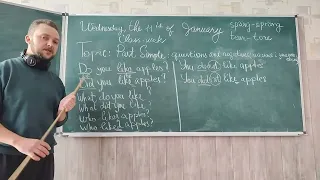 Wednesday, the 11th of January
Class-work
sprang-sprung
tear-tore
Topic: Past Simple, questions and negative
Do you like apples?
Did you like apples?
What do you like
What did you like
Who likes apples?
Who liked apples?
You do not like apples
You did not like apples